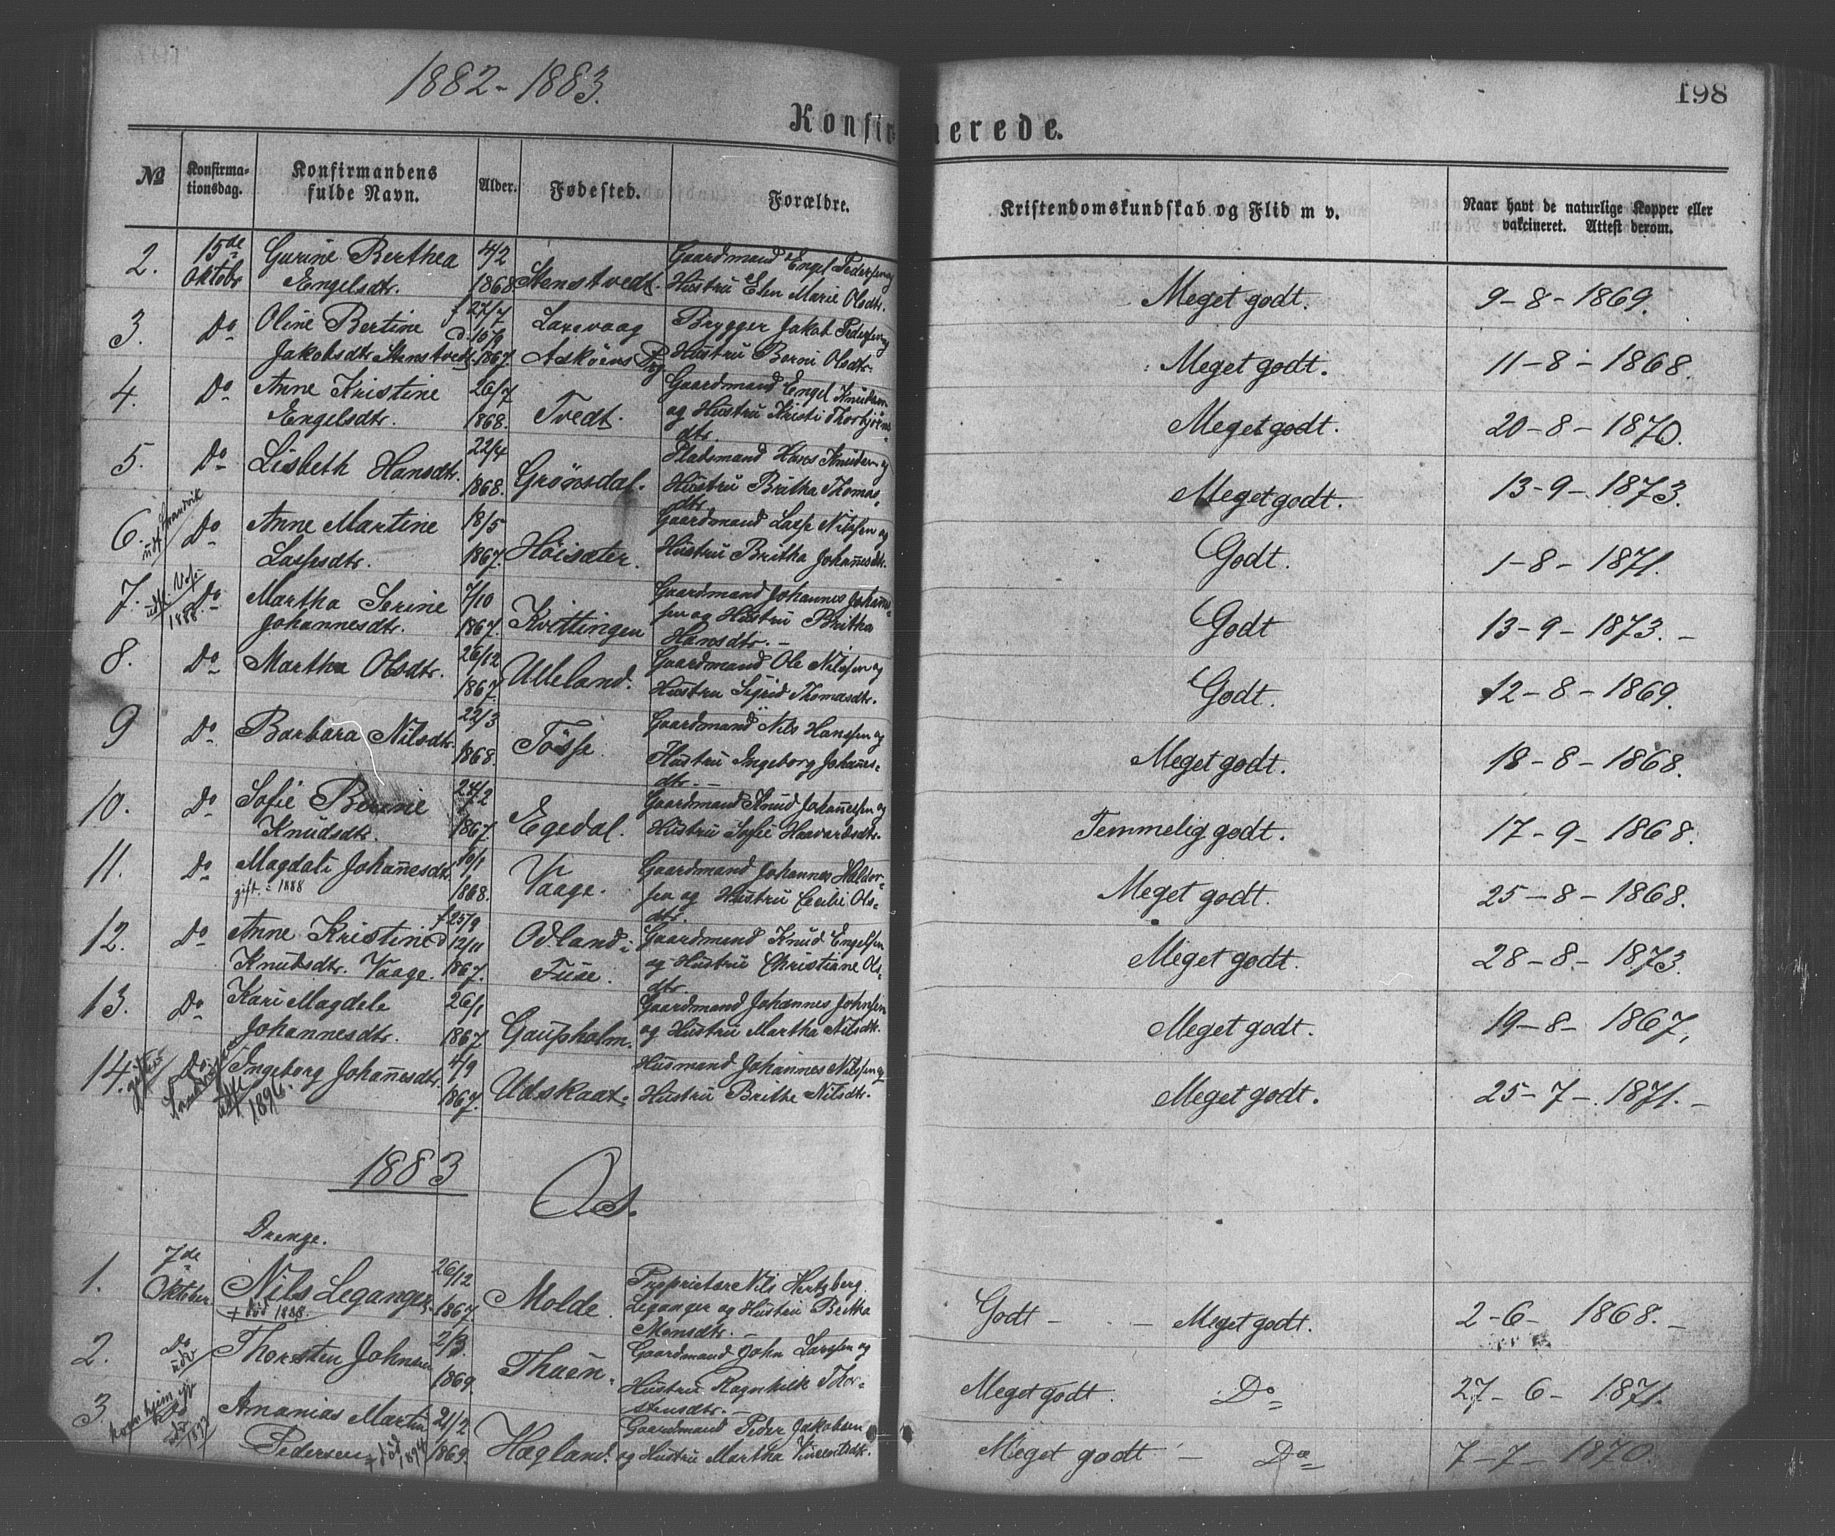 1882-1883.
198
Konfir merede.
№ Konfirma-tionsdag. Konfirmandens fulde Navn. Alder. Fødested. Forældre. Kristendomskundskab og Flid m v. Naar havt de naturlige Kopper eller vakcineret. Attest derom.
2. 15de Gurine Berthea 4/2 Gaardmand Engel Pedersen og
Oktobr Engelsdtr. 1868 Stenstvedt. Hustru Elen Marie Olsdtr. Meget godt. 9-8-1869.
3. Do Oline Bertine f 27/7 Laxevaag Brygger Jakob Pedersen og
Jakobsdtr Stenstvedt d. 10/9 1867. Askøens Prg Hustru Berni Olsdtr. Meget godt. 11-8-1868.
4. Do Anne Kristine 26/7 Tvedt. Gaardmand Engel Knudsen
Engelsdtr. 1868. og Hustru Kristi Thorbjørns-
dtr. Meget godt. 20-8-1870.
5. Do Lisbeth Hansdtr. 22/4 Grønsdal. Pladsmand Hans Knudsen og
1868. Hustru Britha Thomas
dtr. Meget godt. 13-9-1873.
6. udf Strandvik Do Anne Martine 18/5 Gaardmand Lasse Nilssen og
Lassesdtr. 1867. Høisæter. Hustru Britha Johannesdtr. Godt. 1-8-1871.
7. 1888. Do Martha Serine 7/10 Gaardmand Johannes Johannes-
Johannesdtr. 1867. Kvittingen sen og Hustru Britha
Hansdtr. - Godt 13-9-1873. -
8. Do Martha Olsdtr. 26/12 Gaardmand Ole Nilssen og
1867. Ulleland. Hustru Sigrid Thomasdtr. Godt. 12-8-1869.
9 Do Barbara Nilsdtr. 22/3 Gaardmand Nils Hanssen og
1868. Tøsse. Hustru Ingeborg Johans-
dtr. - Meget godt. 18-8-1868.
10. Do Sofie Berine 24/2 Gaardmand Knud Johannessen og
Knudsdtr. 1867. Egedal. Hustru Sofie Haavardsdtr. Temmelig godt. 17-9-1868.
11. Do Magdali Johannesdtr. 10/1 Gaardmand Johannes Haldor-
gift. i 1888 1868. Vaage. sen og Hustru Cecilie Ols-
dtr. Meget godt. 25-8-1868.
12. Do Anne Kristine f 25/9 Odland i Gaardmand Knud Engelsen
Knudsdtr. Vaage. d 12/11 1867. Fuse. og Hustru Christiane Ols-
dtr. Meget godt. 28-8-1873.
13. Do Kari Magdele 26/1 Gaardmand Johannes Johnsen
Johannesdtr. 1867. Gaupholm. og Hustru Martha Nilsdtr. Meget godt. 19-8-1867,
14. Do Ingeborg Johannesdtr. 4/9 Husmand Johannes Nilssen og
1896. 1867. Udskaat. Hustru Brithe Nilsdtr. Meget godt. 25-7-1871. -
1883
Os.
Drenge.
1. 7de Oktober. Nils Leganger. 26/12 Molde. Proprietær Nils Hertzberg
+ död 1888. 1867. Leganger og Hustru Bertha
Monsdtr. - Godt - - Meget godt. 2-6-1868. -
2. Do udv Thorsten Johnsen 2/3 Gaardmand John Larssen og
1869 Thuen. Hustru Ragnhild Thor-
stensdtr. - Meget godt. Do 27-6-1871.
3 Do Ananias Martin 21/2 Gaardmand Peder Jakobsen
Pedersen + död 1894 1869. Hægland. og Hustru Martha Vincentsdtr. Meget godt - Do 7-7-1870.